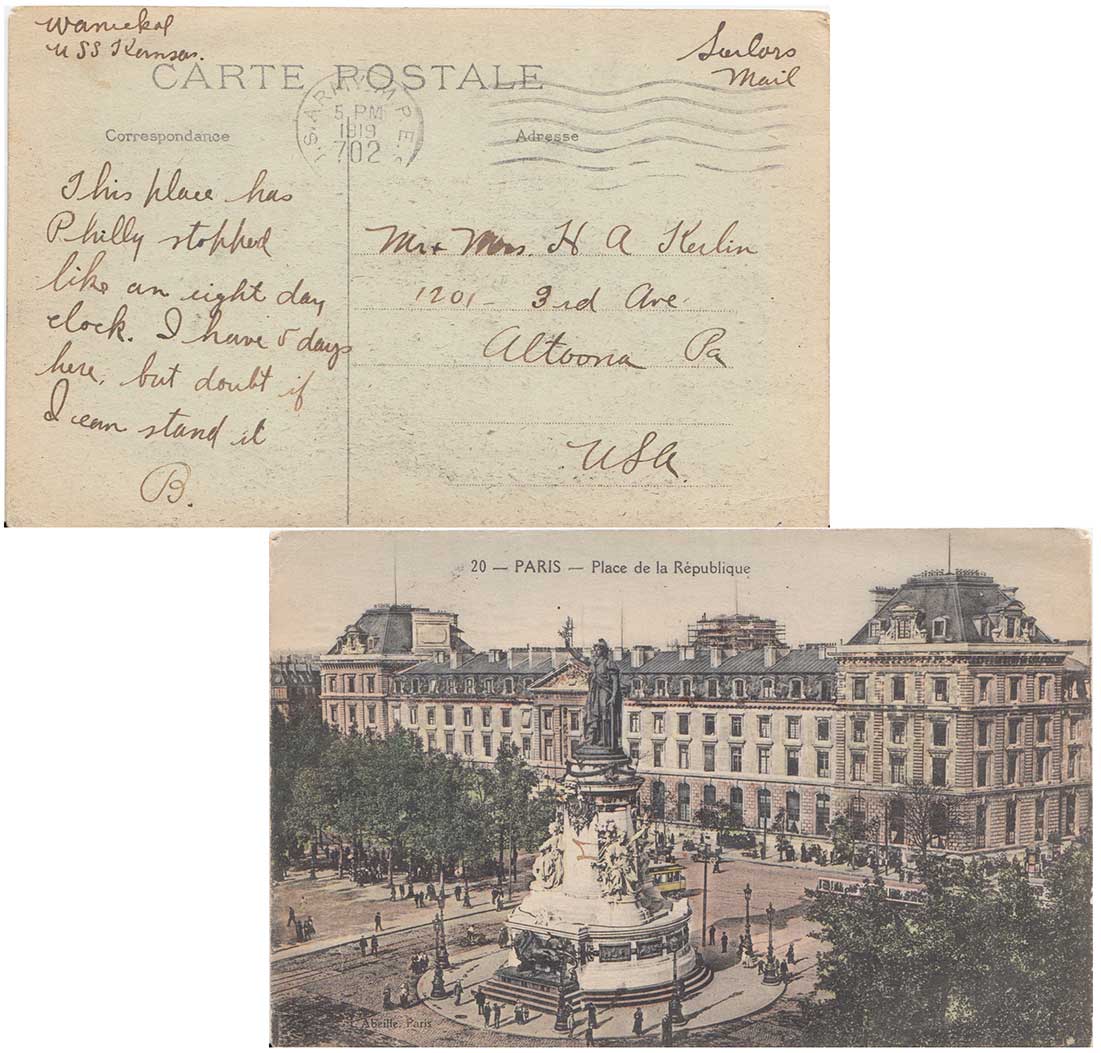 Wanekal
USS Kansas.
Sailors
Mail
CARTE POSTALE
U.S. ARMY M.P.E.S.
5 PM
1919
702
Correspondance
Adresse
This place has
Philly stopped
like an eight day
clock. I have 5 days
here, but doubt if
I can stand it
B.
Mr + Mrs. H A Kerlin
1201 - 3rd Ave.
Altoona Pa
USA
20 — PARIS — Place de la République
M
Abeille, Paris